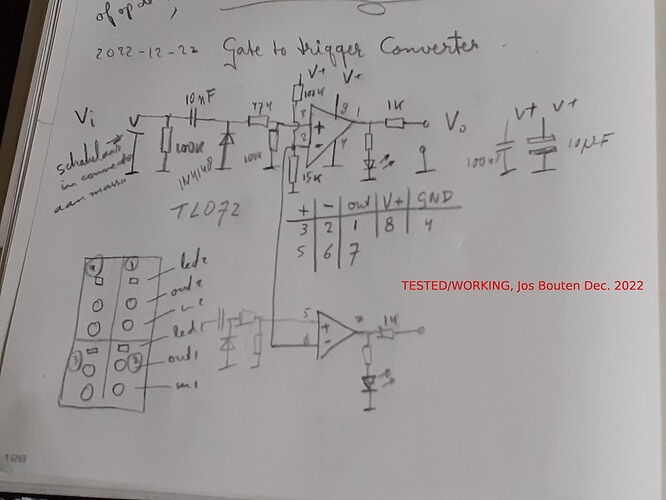 of opa
2022-12-22 Gate to trigger Converter
V+
V+
10nF
100K
Vi
8
1
1K
Vo
3
+
2
-
4
V+
V+
schakelaar
in connector
aan massa
100K
1N4148
100K
15K
100nF
10µF
TL072
+ - out V+ GND
3 2 1 8 4
5 6 7
TESTED/WORKING, Jos Bouten Dec. 2022
4 1
led2
out2
in2
led1
3 2
out1
in1
5
+
6
-
7
1K
126